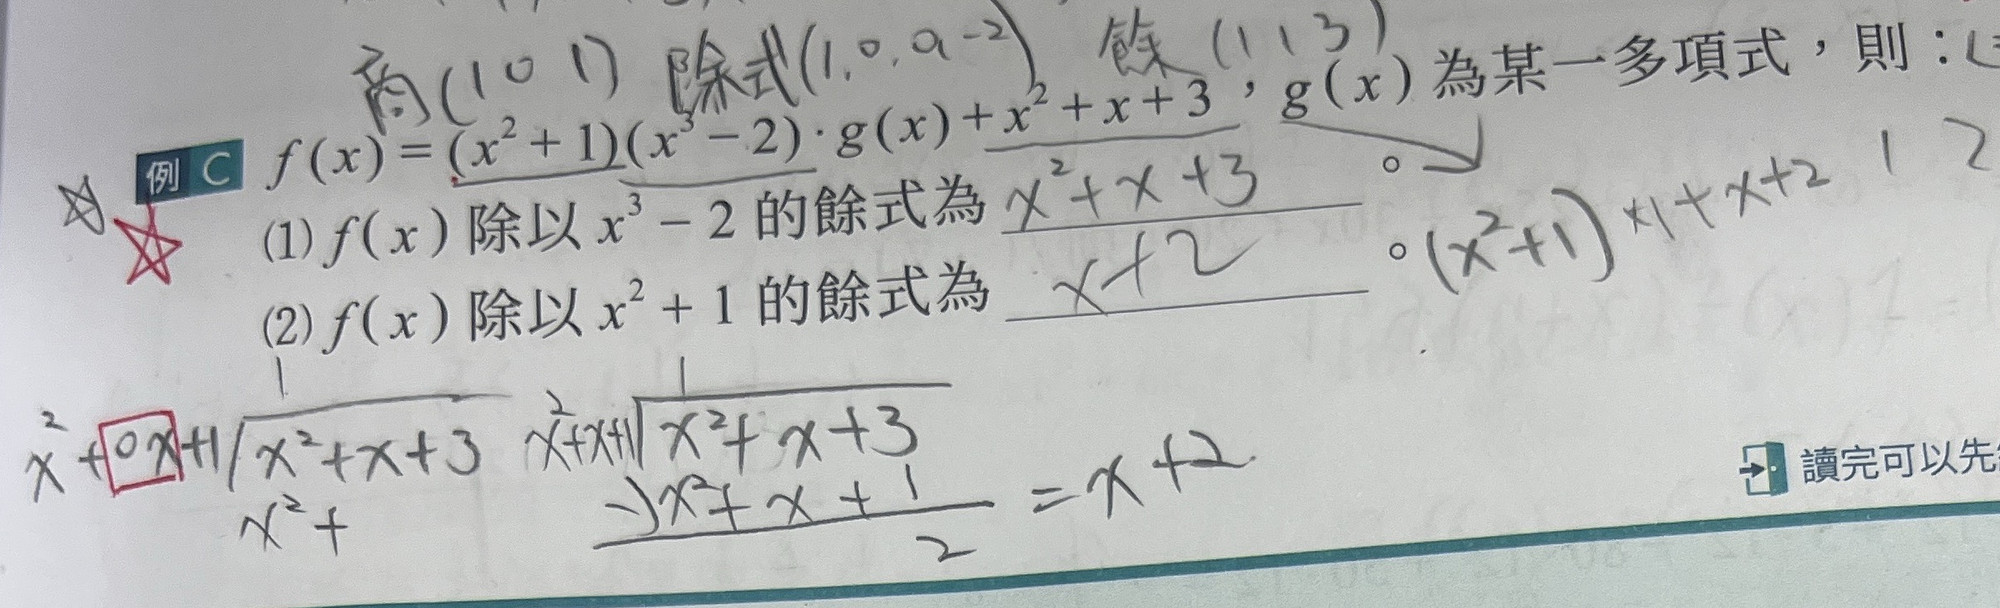 商(1 0 1) 除式(1,0,0-2) 餘(1 1 3)
例C f(x)=(x²+1)(x³-2)·g(x)+x²+x+3，g(x)為某一多項式，則：
(1) f(x)除以x³-2的餘式為 x²+x+3 。
(2) f(x)除以x²+1的餘式為 x+2 。(x²+1)×1+x+2 1 2
1 1
x²+0x+1 x²+x+3 x²+x+1 x²+x+3
x²+ -)x²+x+1 =x+2
2
讀完可以先